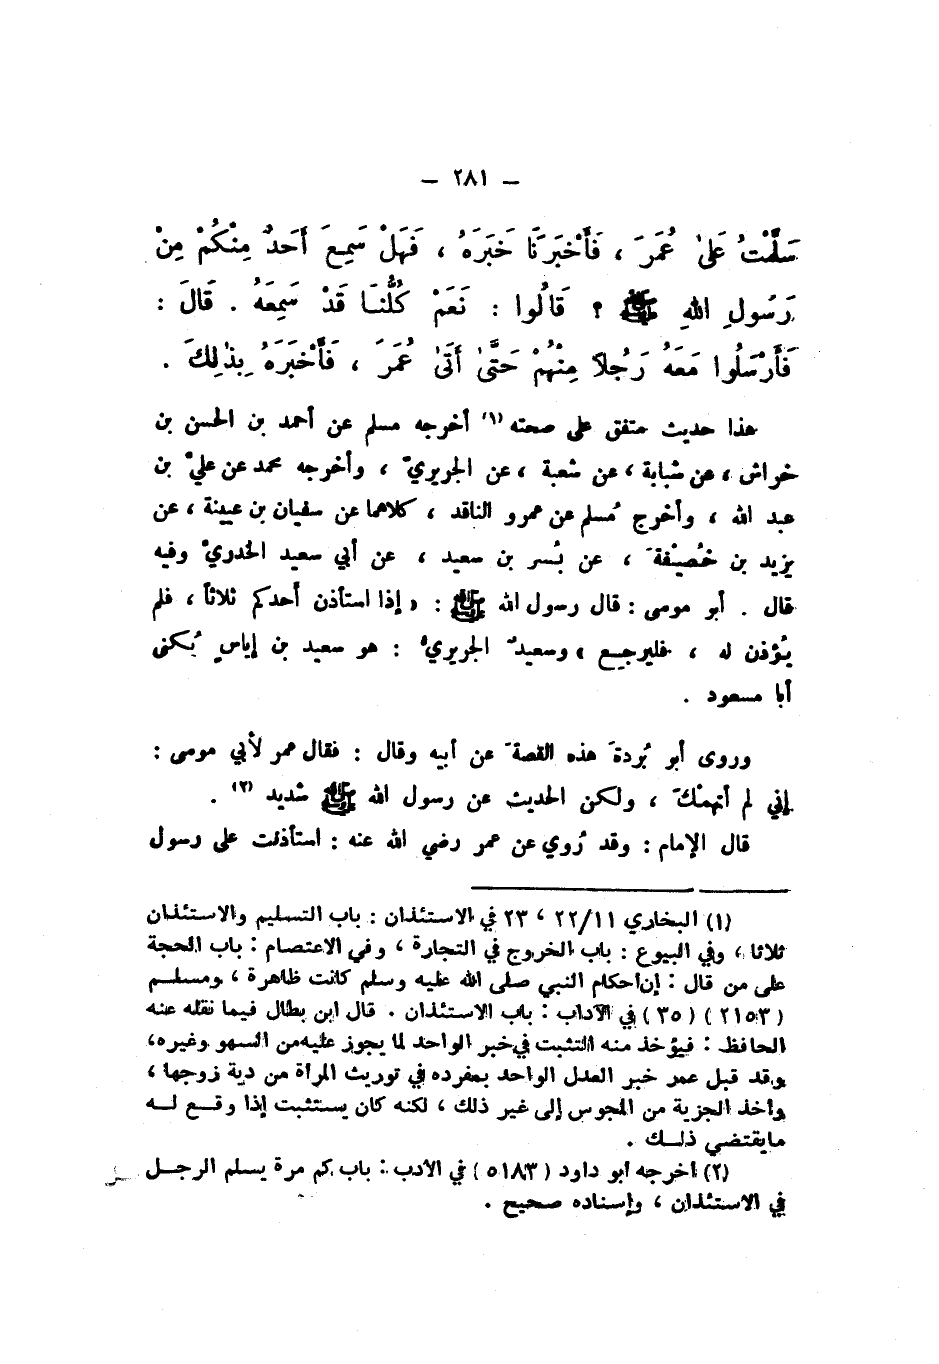 — ٢٨١ —
سَلَّمْتُ عَلَىٰ عُمَرَ ، فَأَخْبَرَنَا خَبَرَهُ ، فَهَلْ سَمِعَ أَحَدٌ مِنْكُمْ مِنْ
رَسُولِ اللهِ ﷺ ؟ قَالُوا : نَعَمْ كُلُّنَا قَدْ سَمِعَهُ . قَالَ :
فَأَرْسَلُوا مَعَهُ رَجُلاً مِنْهُمْ حَتَّىٰ أَتَىٰ عُمَرَ ، فَأَخْبَرَهُ بِذٰلِكَ .
هذا حديث متفق على صحته (١) أخرجه مسلم عن أحمد بن الحسن بن
خراش ، عن شبابة ، عن شعبة ، عن الجريريّ ، وأخرجه محمد عن عليّ بن
عبد الله ، وأخرج مُسلم عن عمرو الناقد ، كلاهما عن سفيان بن عيينة ، عن
يزيد بن خُصيْفةَ ، عن بُسر بن سعيد ، عن أبي سعيد الخدريّ وفيه
قال . أبو موسى : قال رسول الله ﷺ : « إذا استأذن أحدكم ثلاثاً ، فلم
يُؤذن له ، فليرجع » وسعيدٌ الجريريُّ : هو سعيد بن إياسٍ يُكنى
أبا مسعود .
وروى أبو بُردةَ هذه القصةَ عن أبيه وقال : فقال عمر لأبي موسى :
إني لم أتهمْكَ ، ولكن الحديث عن رسول الله ﷺ شديد (٢) .
قال الإمام : وقد رُوي عن عمر رضي الله عنه : استأذنت على رسول
(١) البخاري ٢٢/١١ ، ٢٣ في الاستئذان : باب التسليم والاستئذان
ثلاثا ، وفي البيوع : باب الخروج في التجارة ، وفي الاعتصام : باب الحجة
على من قال : إن أحكام النبي صلى الله عليه وسلم كانت ظاهرة ، ومسلم
(٢١٥٣) (٣٥) في الآداب : باب الاستئذان . قال ابن بطال فيما نقله عنه
الحافظ : فيؤخذ منه التثبت في خبر الواحد لما يجوز عليه من السهو وغيره،
وقد قبل عمر خبر العدل الواحد بمفرده في توريث المرأة من دية زوجها ،
وأخذ الجزية من المجوس إلى غير ذلك ، لكنه كان يستثبت إذا وقع له
ما يقتضي ذلك .
(٢) أخرجه أبو داود (٥١٨٣) في الأدب : باب كم مرة يسلم الرجل
في الاستئذان ، وإسناده صحيح .